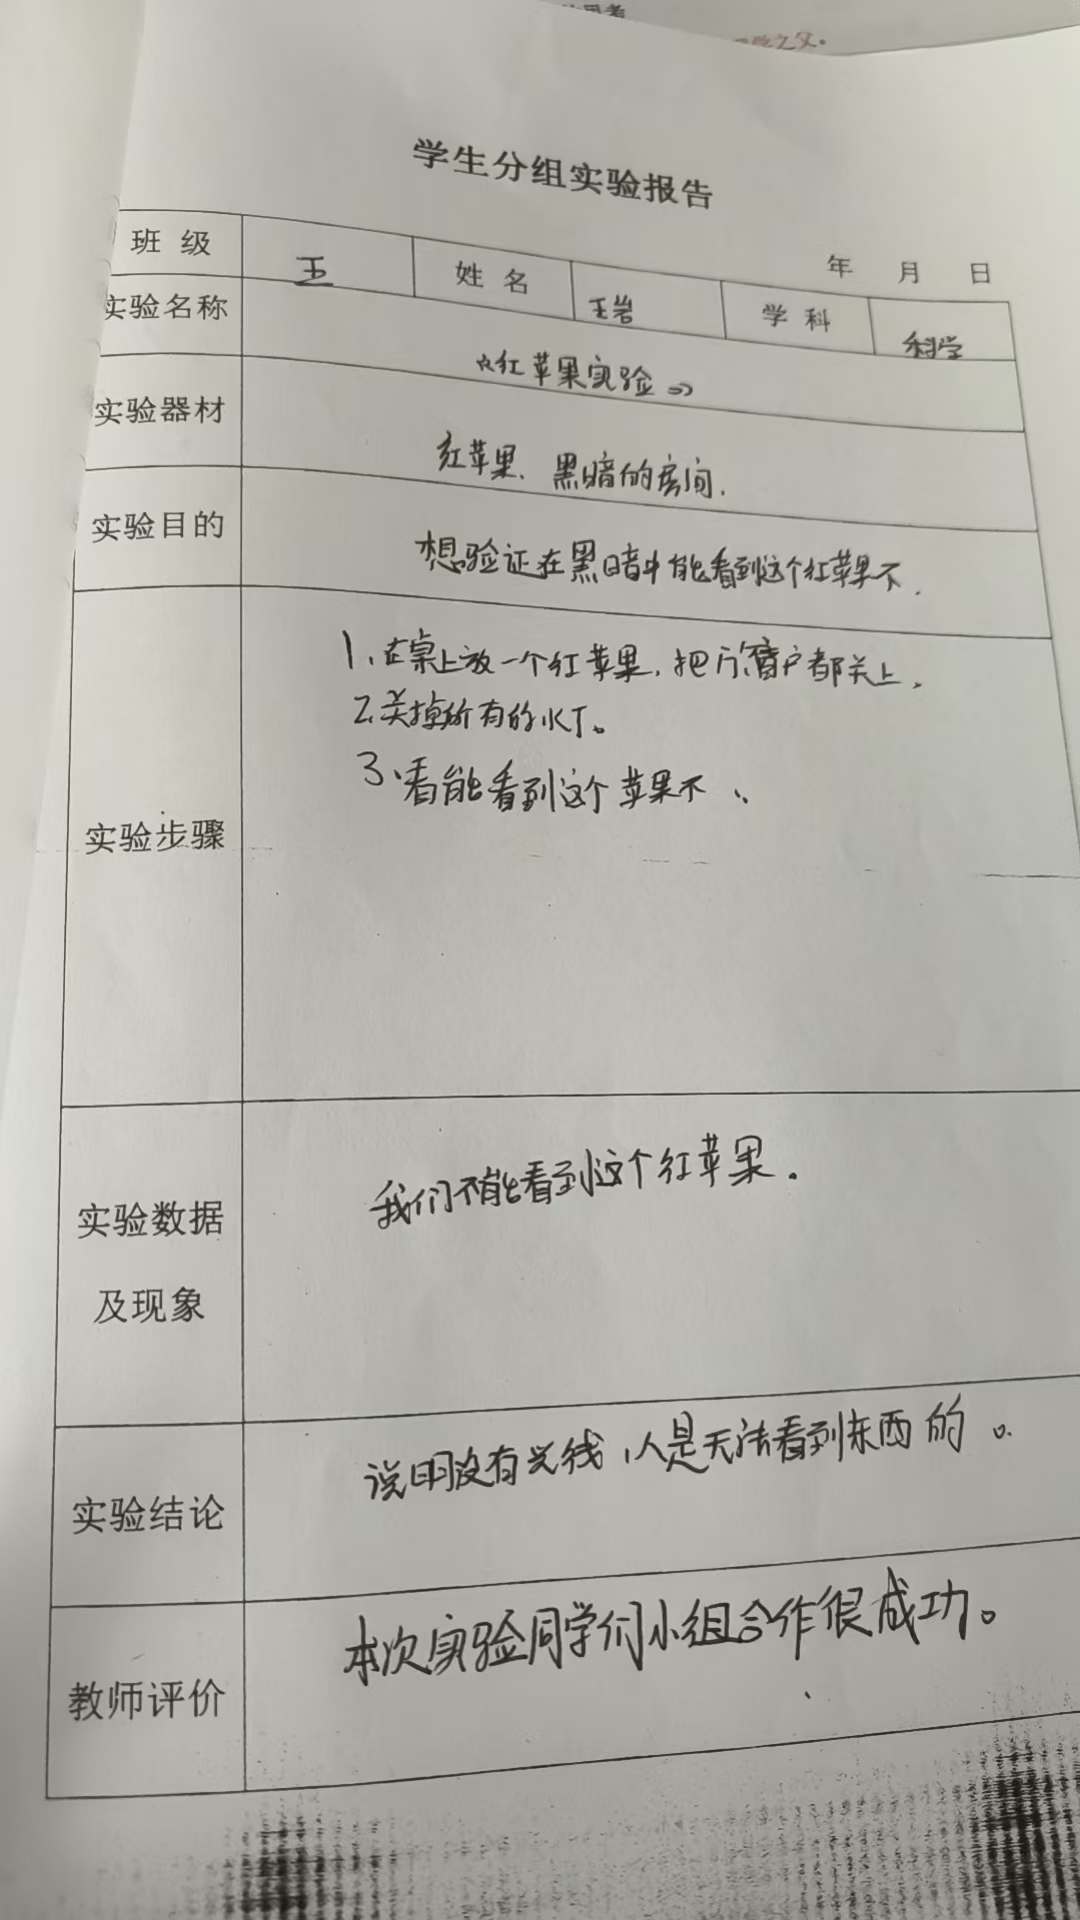 学生分组实验报告
年 月 日
班 级 五 姓 名 王岩 学 科 科学
实验名称 《红苹果实验》
实验器材 红苹果、黑暗的房间.
实验目的 想验证在黑暗中能看到这个红苹果不.
实验步骤
1、在桌上放一个红苹果,把门窗户都关上.
2、关掉所有的灯。
3、看能看到这个苹果不.
实验数据
及现象
我们不能看到这个红苹果.
实验结论 说明没有光线,人是无法看到东西的。
教师评价 本次实验同学们小组合作很成功。